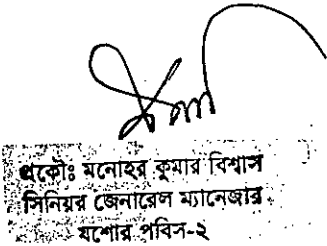 প্রকৌঃ মনোহর কুমার বিশ্বাস
সিনিয়র জেনারেল ম্যানেজার
যশোর পবিস-২